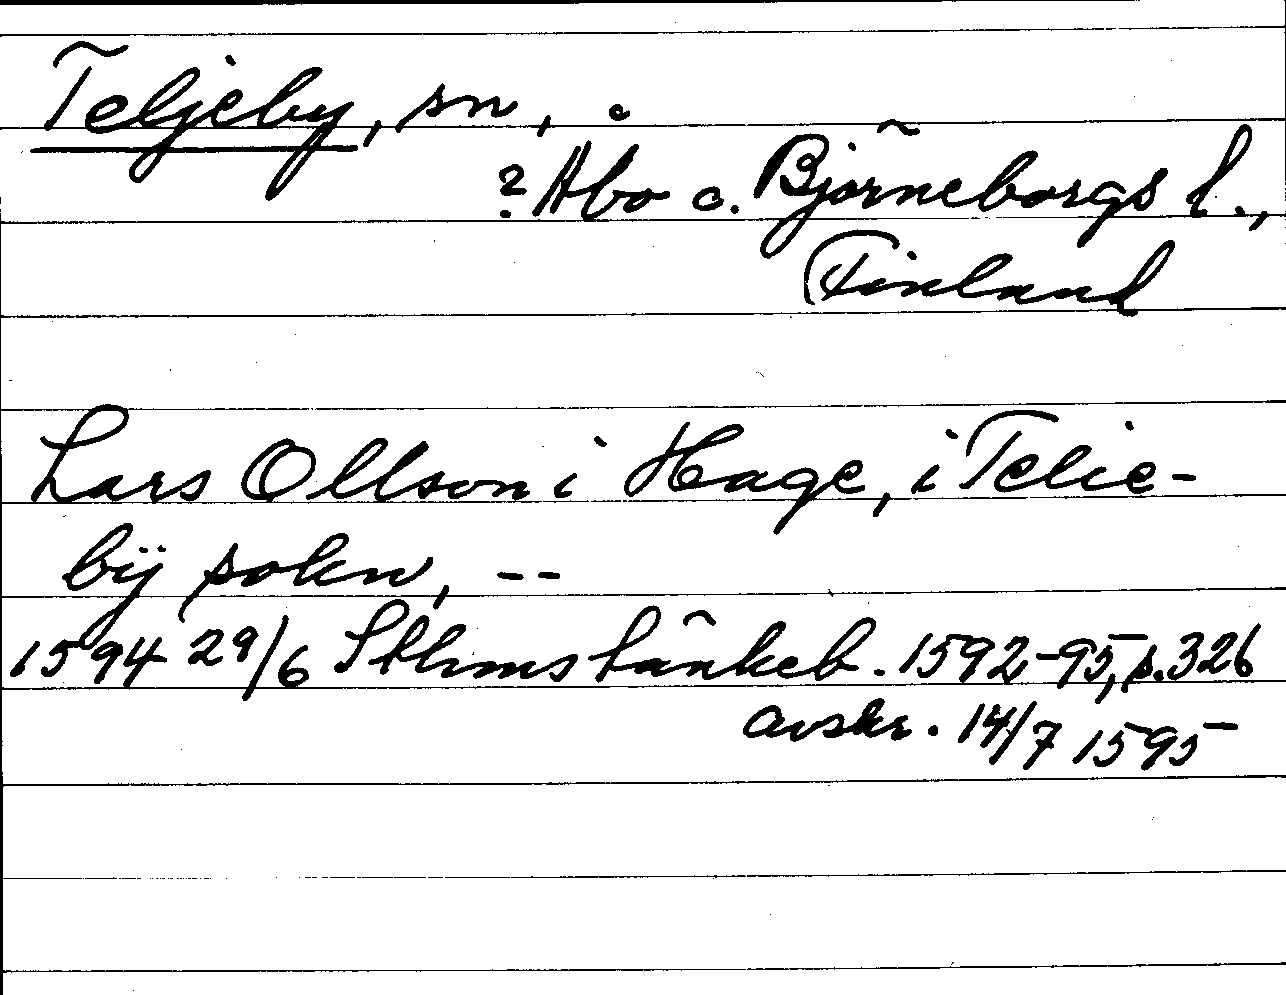 Teljeby, sn,
? Åbo o. Björneborgs l.,
Finland
Lars Ollson i Hage, i Telie-
bÿ sokn, --
1594 29/6 Sthms tänkeb. 1592-95, s. 326
avskr. 14/7 1595